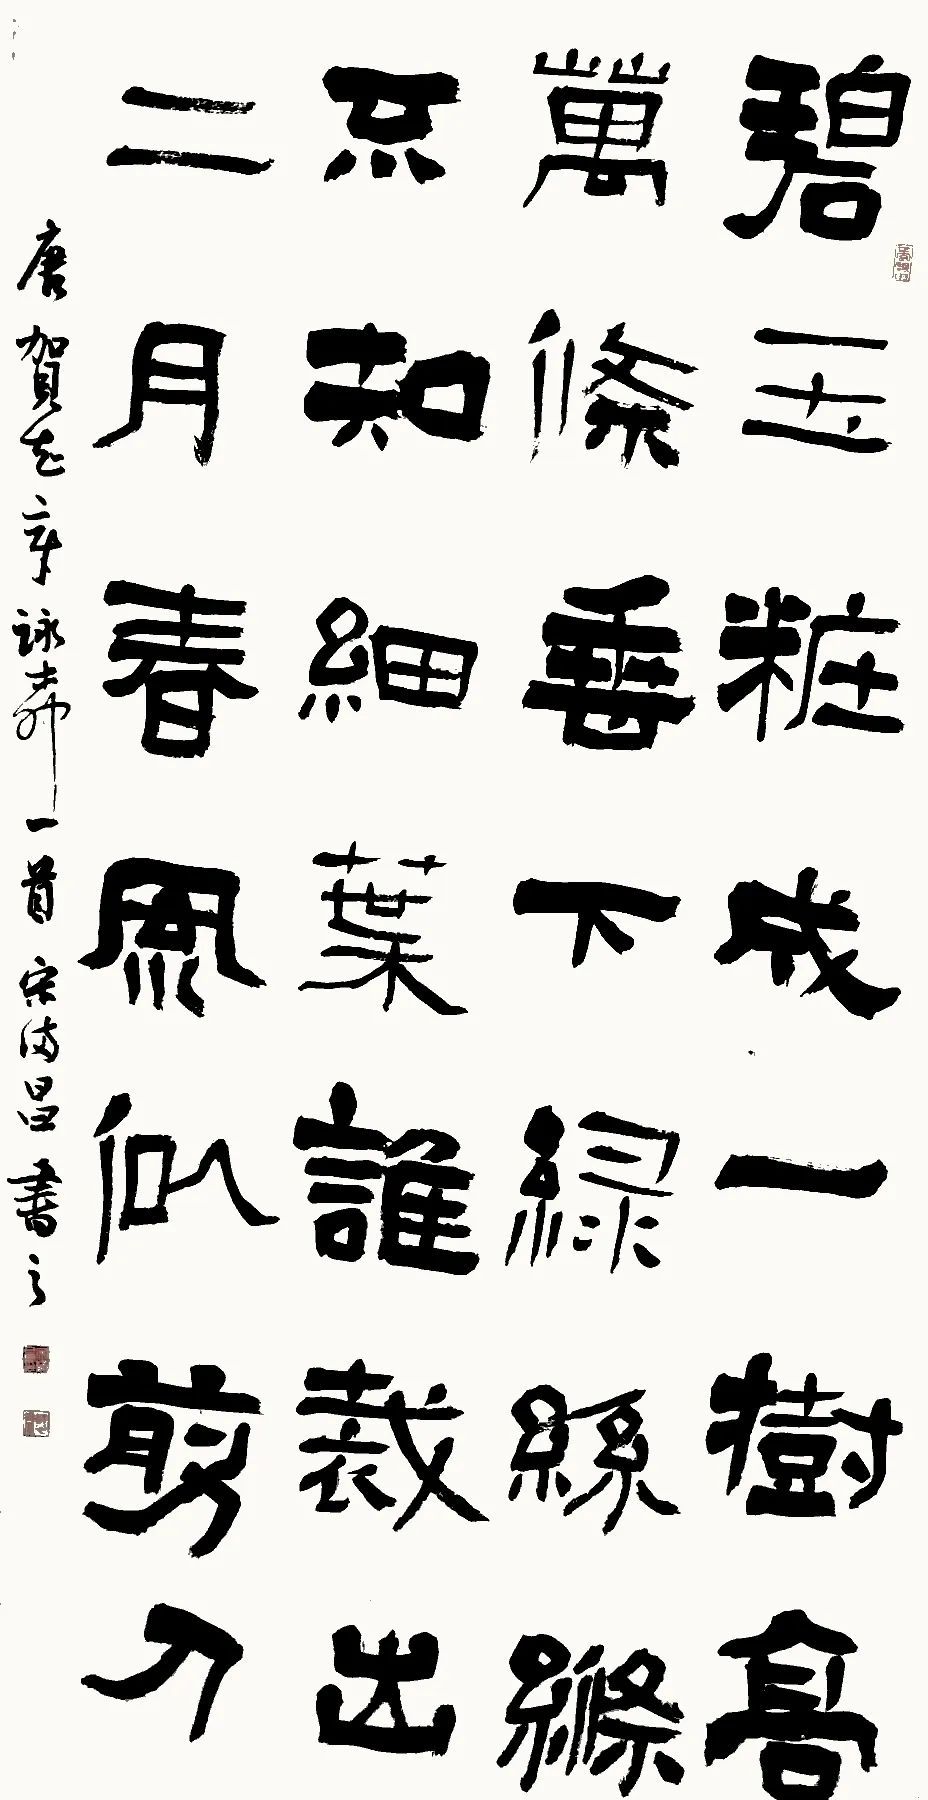 碧玉粧成一樹高
萬條垂下綠絲縧
不知細葉誰裁出
二月春風似剪刀
唐賀知章詠柳一首 宋昌書之